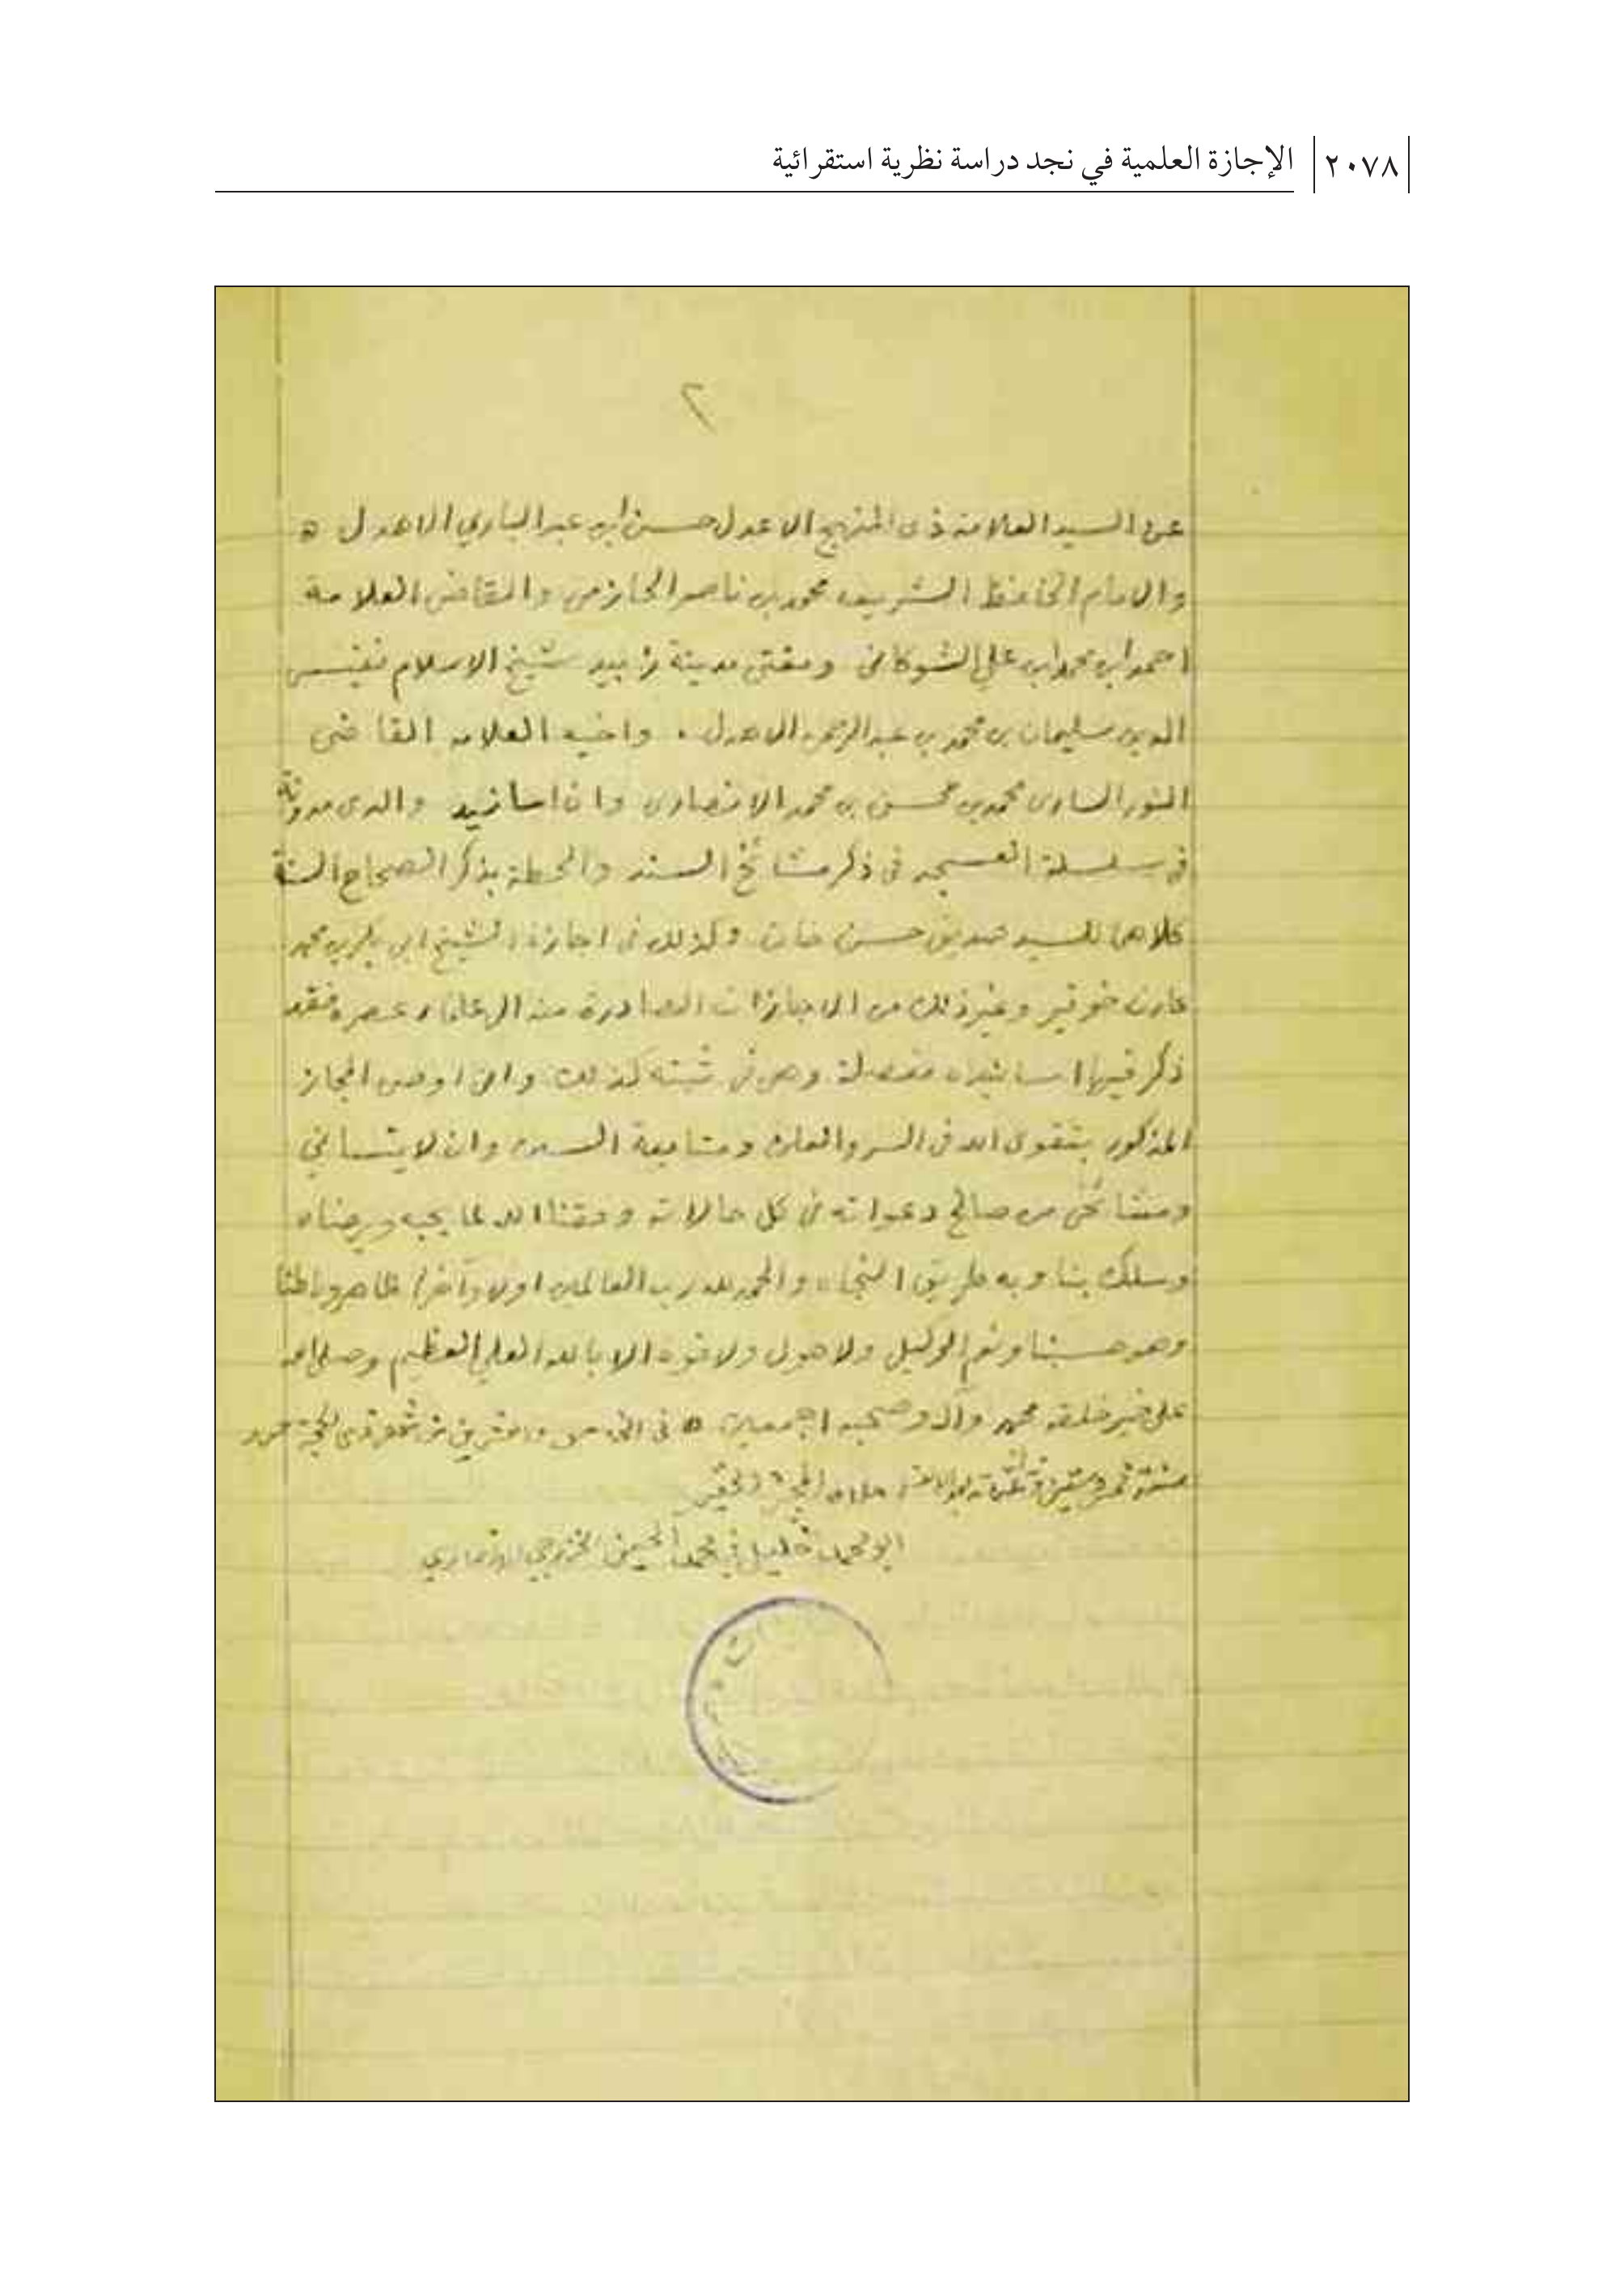 ٢٠٧٨ الإجازة العلمية في نجد دراسة نظرية استقرائية
٢
عن السيد العلامة ذى المنهج الاعدل حسن ابن عبد الباري الاهدل ه
والامام الحافظ الشريف محمد بن ناصر الحازمى والقاضى العلامة
احمد ابن محمد ابن على الشوكانى ومفتى مدينة زبيد شيخ الاسلام نفيس
الدين سليمان بن محمد بن عبد الرحمن الاهدل . واخيه العلامه القاضى
النور السارى محمد بن محسن بن محمد الانصارى وان اسانيد والدى مدونة
فى سلسلة العسجد فى ذكر مشائخ السند والحطة بذكر الصحاح الستة
كلاهما للسيد صديق حسن خان وكذلك فى اجازة الشيخ ابى بكر بن محمد
عارف خوقير وغير ذلك من الاجازات الصادرة منه الى علماء عصره فقد
ذكر فيها اسانيده مفصلة وهى فى ثبته كذلك وانى اوصى المجاز
المذكور بتقوى الله فى السر والعلن ومتابعة السنن وان لا ينسانى
ومشائخى من صالح دعواته فى كل حالاته وفقنا الله لما يحبه ويرضاه
وسلك بنا وبه طريق النجاة والحمد لله رب العالمين اولا وآخرا ظاهرا وباطنا
وهو حسبنا ونعم الوكيل ولا حول ولا قوة الا بالله العلي العظيم وصلى الله
على خير خلقه محمد وآله وصحبه اجمعين ه فى الخامس والعشرين من شهر ذى الحجة
سنة
ابو محمد خليل بن محمد الخزرجي الانصاري